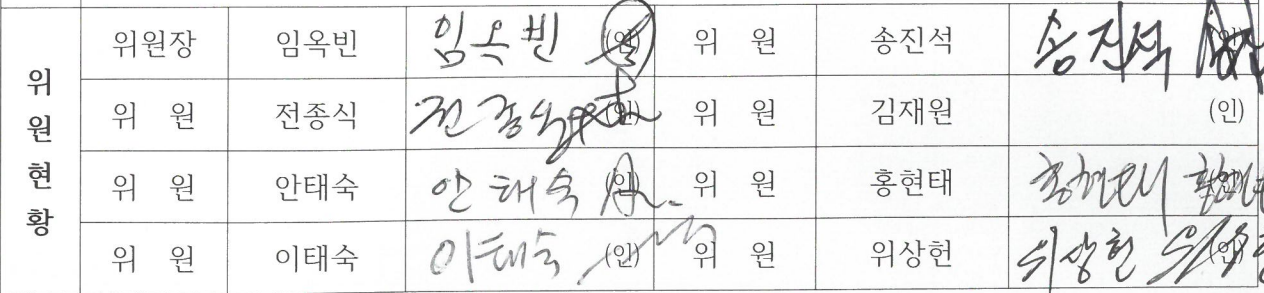 위원현황
위원장 임옥빈 임옥빈 (인) 위 원 송진석 송진석 (인)
위 원 전종식 전종식 (인) 위 원 김재원 (인)
위 원 안태숙 안태숙 (인) 위 원 홍현태 홍현태
위 원 이태숙 이태숙 (인) 위 원 위상헌 위상헌 (인)